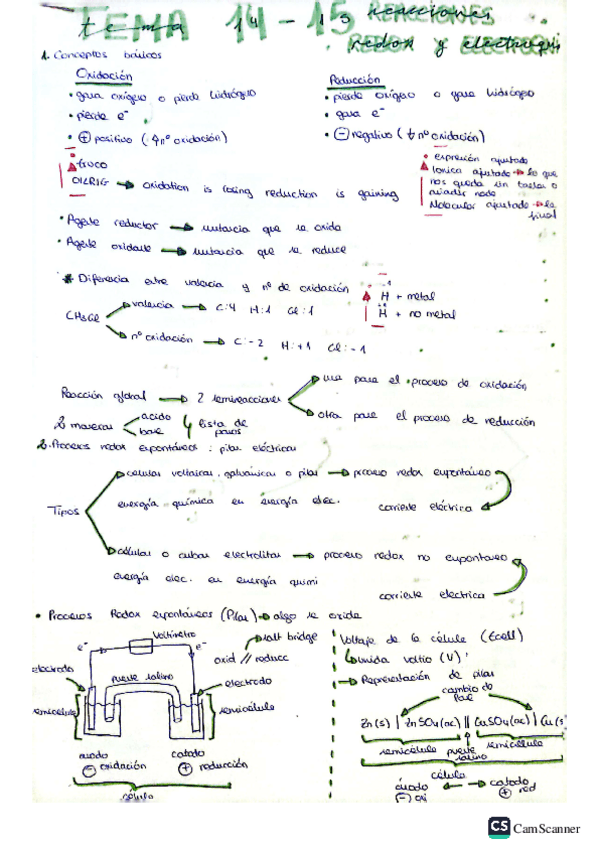 TEMA 14-15 REACCIONES
tema 14-15 reacciones
redox y electroquí
1. Conceptos básicos
Oxidación
Reducción
• gana oxígeno o pierde hidrógeno
• pierde oxígeno o gana hidrógeno
• pierde e⁻
• gana e⁻
• ⊕ positivo (↑nº oxidación)
• ⊖ negativo (↓nº oxidación)
truco
OILRIG → oxidation is losing reduction is gaining
• expresión ajustada
Iónica ajustada → lo que
nos queda sin tachar o
añadir nada
Molecular ajustada → la
final
• Agente reductor → sustancia que se oxida
• Agente oxidante → sustancia que se reduce
* Diferencia entre valencia y nº de oxidación
H + metal
H + no metal
CH3Cl
valencia → C:4 H:1 Cl:1
nº oxidación → C:-2 H:+1 Cl:-1
Reacción global → 2 semireacciones
una para el proceso de oxidación
otra para el proceso de reducción
2 maneras
acido
base
lista de
pasos
2. Procesos redox espontáneos: pilas eléctricas
Tipos
células voltaicas, galvánicas o pilas → proceso redox espontáneo
energía química en energía elec.
corriente eléctrica
células o cubas electrolitas → proceso redox no espontaneo
energía elec. en energía quími
corriente electrica
• Procesos Redox espontáneos (Pilas) → algo se oxida
Voltímetro
e⁻
e⁻
salt bridge
oxid // reducc
electrodo
puente salino
electrodo
semicélula
semicélula
anodo
⊖ oxidación
catodo
⊕ reducción
célula
Voltaje de la célula (Ecell)
unida voltio (V)
→ Representación de pilas
cambio de
fase
Zn(s) | ZnSO4(ac) || CuSO4(ac) | Cu(s
semicélula
puente
salino
semicélula
célula
ánodo
catodo
⊖ oxi
⊕ red
CS CamScanner